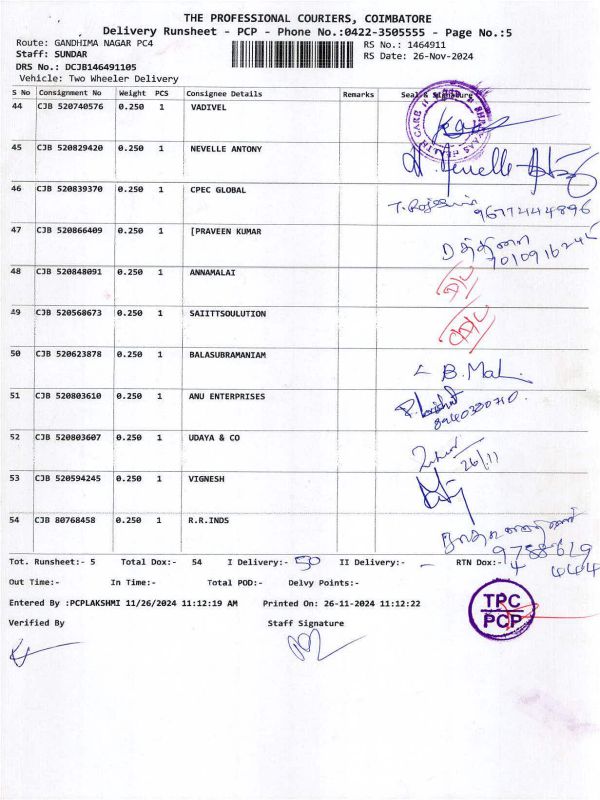 THE PROFESSIONAL COURIERS, COIMBATORE
Delivery Runsheet - PCP - Phone No.:0422-3505555 - Page No.:5
Route: GANDHIMA NAGAR PC4
RS No.: 1464911
Staff: SUNDAR
RS Date: 26-Nov-2024
DRS No.: DCJB146491105
Vehicle: Two Wheeler Delivery
S No Consignment No Weight PCS Consignee Details Remarks Seal & Signature
44 CJB 520740576 0.250 1 VADIVEL
HEALTH CARE
45 CJB 520829420 0.250 1 NEVELLE ANTONY
46 CJB 520839370 0.250 1 CPEC GLOBAL
9677244896
47 CJB 520866409 0.250 1 [PRAVEEN KUMAR
48 CJB 520848091 0.250 1 ANNAMALAI
49 CJB 520568673 0.250 1 SAIITTSOULUTION
50 CJB 520623878 0.250 1 BALASUBRAMANIAM
51 CJB 520803610 0.250 1 ANU ENTERPRISES
52 CJB 520803607 0.250 1 UDAYA & CO
26/11
53 CJB 520594245 0.250 1 VIGNESH
54 CJB 80768458 0.250 1 R.R.INDS
9788619
Tot. Runsheet:- 5 Total Dox:- 54 I Delivery:- 50 II Delivery:- - RTN Dox:- 4
444
Out Time:- In Time:- Total POD:- Delvy Points:-
Entered By :PCPLAKSHMI 11/26/2024 11:12:19 AM Printed On: 26-11-2024 11:12:22
TPC
PCP
Verified By Staff Signature